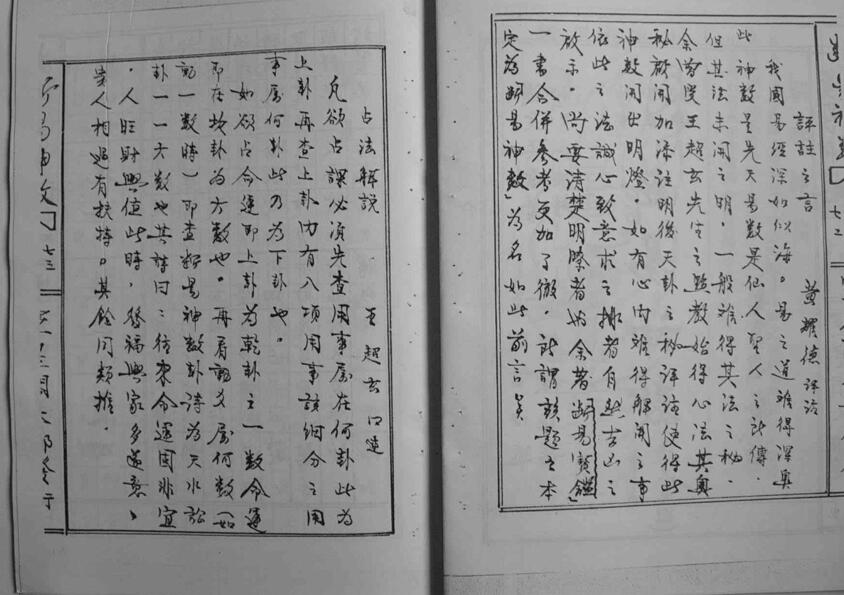 評註之言　黃耀德評註
我國易經深如似海。易之道難得深奧
此神數是先天易數是仙人聖人之所傳．
但其法未開之明．一般難得其法之秘．
余蒙受王超玄先生之點教始得心法其奧
秘啟開加添註明後天卦之秘評註使得此
神數開出明燈．如有心內難得解開之事
依此之法誠心致意求之排者自然吉凶之
啟示．尚要清楚明瞭者為余著斷易寶鑑」
一書合併參考更加了徹．所謂該題之本
定為斷易神數」為名如此前言矣
七二
占法解說．
王超玄口述
凡欲占課必須先查用事屬在何卦此為
上卦再查上卦內有八項用事該細分之用
事屬何卦此乃為下卦也。
如欲占命運即上卦為乾卦之一數命運
即在坎卦為六數也。再看動爻屬何數（如
動一數時）即查斷易神數卦詩為天水訟
卦一一六數也其詩曰：往來命運固非宜
．人旺財興值此時，發福興家多遂意、
貴人相遇有扶持。其餘同類推．
七三